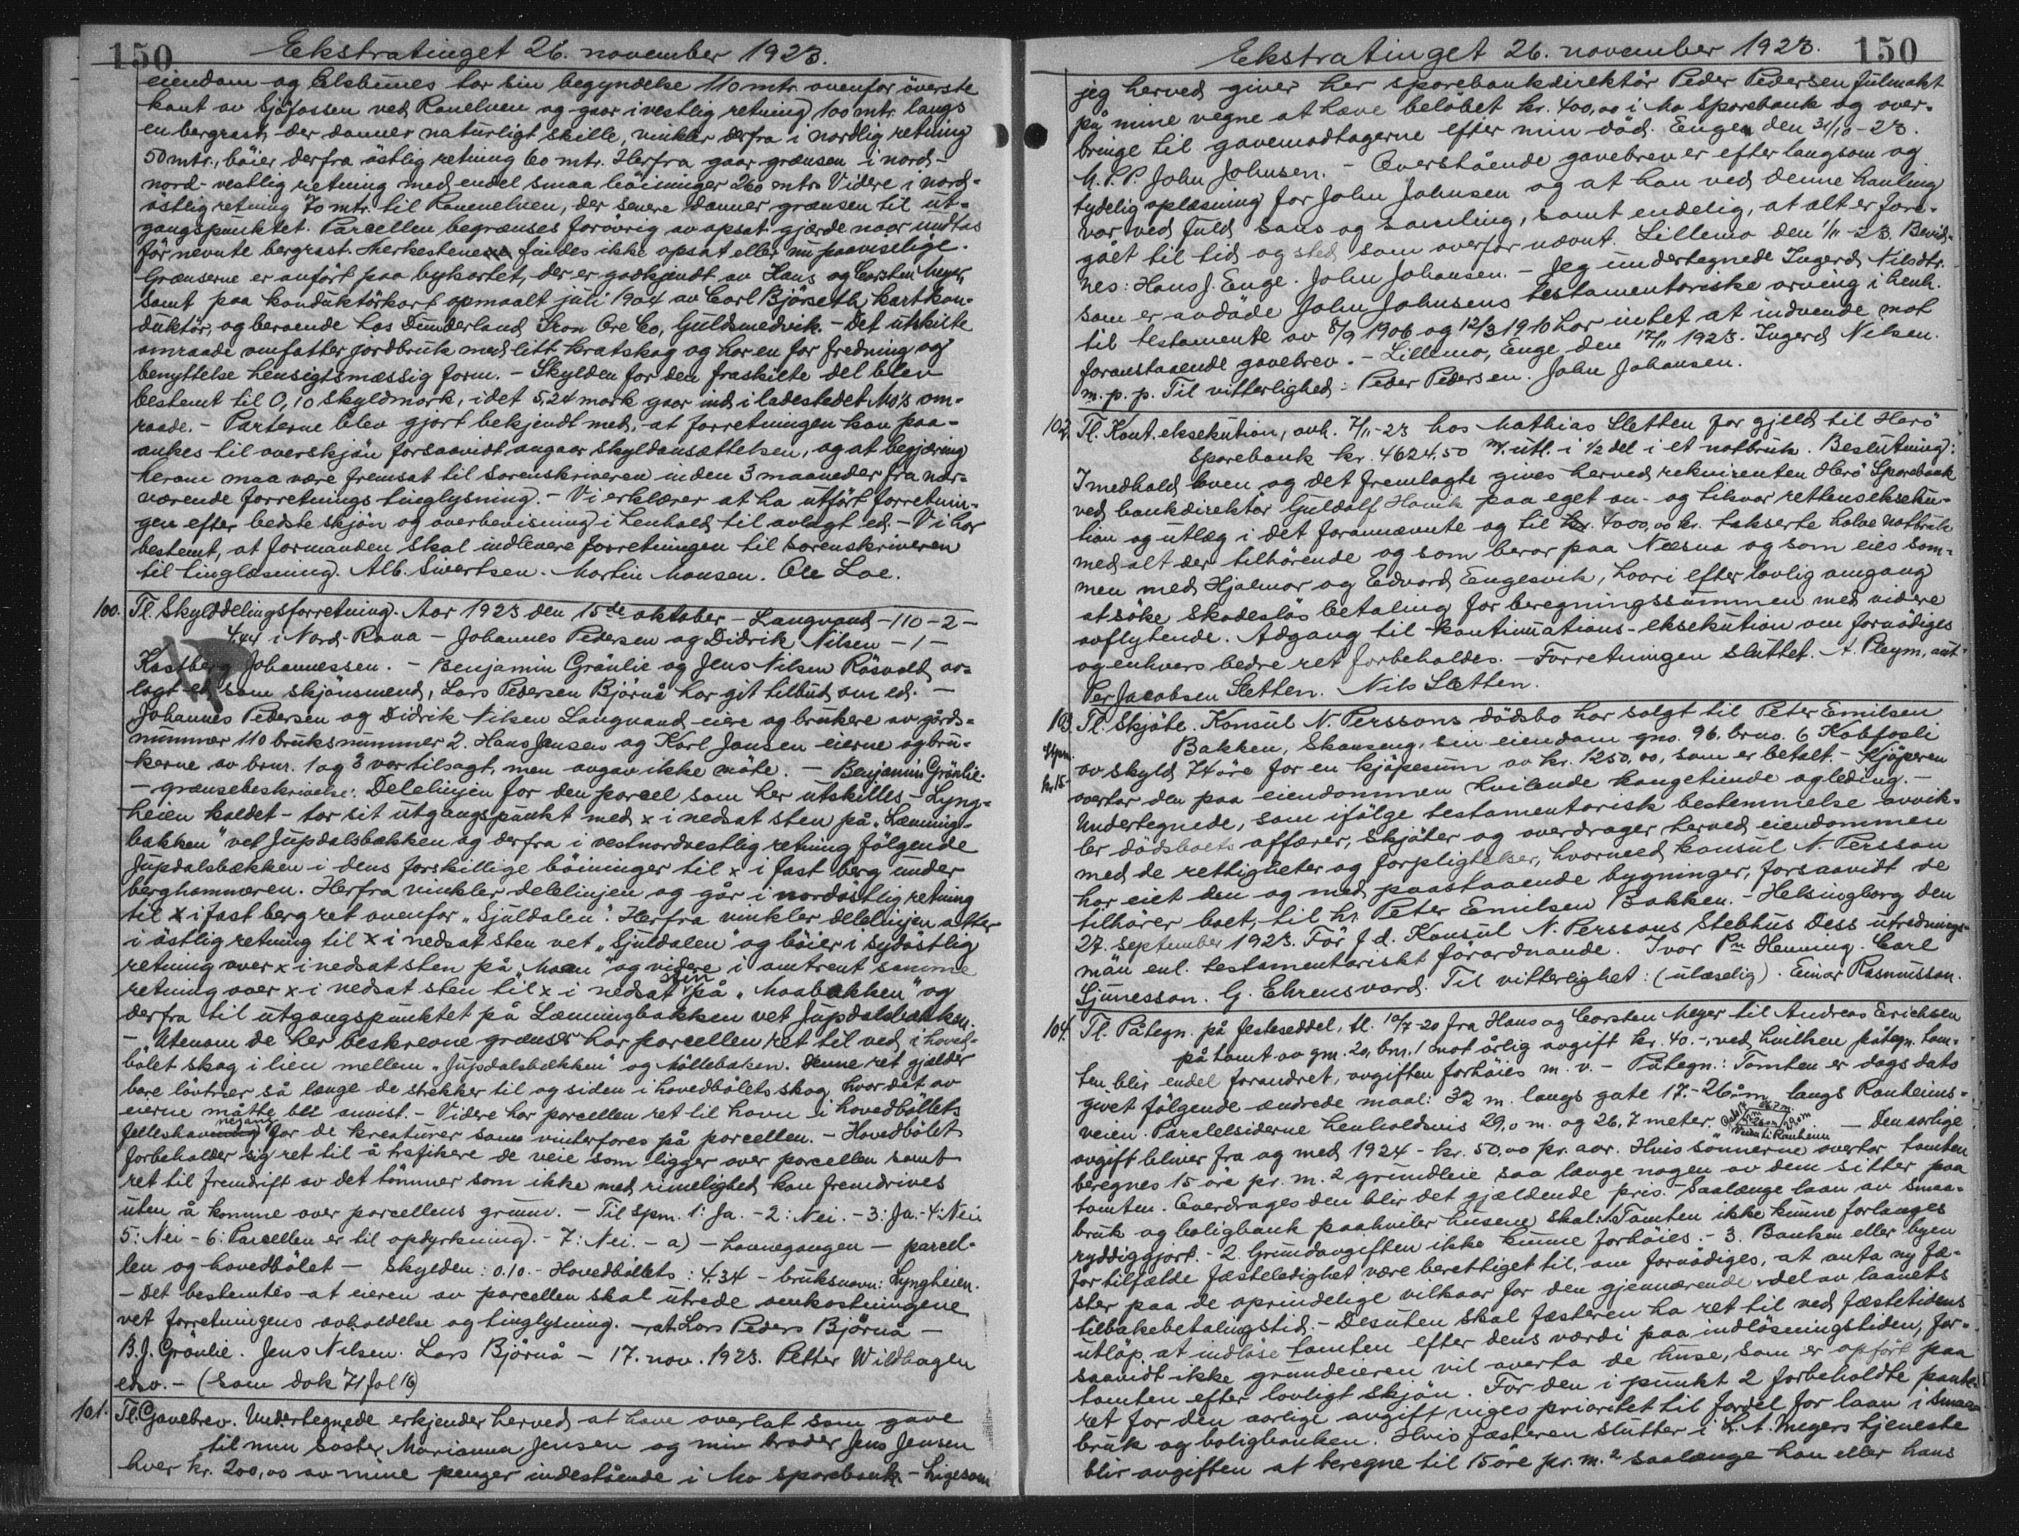 150
Ekstratinget 26. november 1923.
eiendom og Elsbünes tar sin begyndelse 110 mtr. ovenfor överste
kant av Sjöfossen ved Ranelven og gaar i vestlig retning 100 mtr. langs
en bergrast, der danner naturligt skille, vinkler derfra i nordlig retning
50 mtr., böier derfra östlig retning 60 mtr. Herfra gaar grænsen i nord-
nord-vestlig retning med endel smaa böininger 260 mtr. Videre i nord-
östlig retning 70 mtr. til Ranenelven, der senere danner grænsen til ut-
gangspunktet. Parcellen begrænses forövrig av opsat gjærde naar undtas
för nevnte bergrast. Merkestene findes ikke opsat eller nu paaviselige.
Grænserne er anfört paa bykartet, der er godkjendt av Hans og Carsten Meyer,
samt paa konduktörkart opmaalt juli 1904 av Carl Bjørseth, kartkon-
duktör, og beroende hos Dunderland Iron Ore Co, Guldsmedvik. - Det utskilte
omraade omfatter jordbruk med litt kratskog og har en for fredning og
benyttelse hensigtsmæssig form. - Skylden for den fraskilte del blev
bestemt til 0,10 skyldmark, idet 5,24 mark gaar ind i ladestedet Mo's om-
raade. - Parterne blev gjort bekjendt med, at forretningen kan paa-
ankes til overskjön forsaavidt angaar skyldansættelsen, og at begjæring
herom maa være fremsat til sorenskriveren inden 3 maaneder fra nær-
værende forretnings tinglysning. - Vi erklærer at ha utfört forretnin-
gen efter bedste skjön og overbevisning i henhold til avlagt ed. - Vi har
bestemt, at formanden skal indlevere forretningen til sorenskriveren
til tinglæsning. Alb. Sivertsen. Martin Monsen. Ole Loe.
100. Tl. Skylddelingsforretning. Aar 1923 den 15de oktober - Langvand - 110 - 2 -
4.44 i Nord-Rana - Johannes Pedersen og Didrik Nilsen - 1 -
Kastberg Johannessen. - Benjamin Grönlie og Jens Nilsen Røsvold av-
lagt ed som skjönsmend, Lars Pedersen Björnå har git tilbud om ed. -
Johannes Pedersen og Didrik Nilsen Langvand eiere og brukere av gårds-
nummer 110 bruksnummer 2. Hans Jensen og Karl Jansen eierne og bru-
kerne av brnr. 1 og 3 var tilsagt, men avgav ikke möte. - Benjamin Grönlie.
- grænsebeskrivelse: Delelinjen for den parcel som her utskilles - Lyng-
heien kaldet - tar sit utgangspunkt med x i nedsat sten på "Lænning-
bakken" vet Jupdalsbakken og derfra i vestnordvestlig retning fölgende
Jupdalsbækken i dens forskillige böininger til x i fast berg under
berghammeren. Herfra vinkler delelinjen og går i nordöstlig retning
til x i fast berg ret ovenfor "Sjuldalen". Herfra vinkler delelinjen atter
i östlig retning til x i nedsat sten vet "Sjuldalen" og böier i sydöstlig
retning over x i nedsat sten på "Moen" og videre i omtrent samme
retning over x i nedsat sten til x i nedsat sten på "Moabakken" og
derfra til utgangspunktet på Lænningbakken vet Jupdalsbækken.
- Utenom de her beskrevne grænser har parcellen ret til ved i hoved-
bölet skog i lien mellem "Jupdalsbækken" og Möllebækken. Denne ret gjælder
bare lövtrær så længe de strekker til og siden i hovedbölets skog, hvor det av
eierne måtte bli anvist. - Videre har parcellen ret til havn i hovedbölets
felleshavnegang for de kreaturer som vinterfores på parcellen. - Hovedbölet
forbeholder sig ret til å trafikere de veie som ligger over parcellen samt
ret til fremdrift av det tömmer som ikke med rimelighed kan fremdrives
uten å komme over parcellens grunn. - Til Spm. 1: Ja. - 2: Nei. - 3: Ja. - 4: Nei
5: Nei - 6: Parcellen er til opdyrkning. - 7: Nei. - a) - havnegangen - parcel-
len og hovedbölet - Skylden: 0.10. - Hovedböllets: 4.34 - bruksnavn: Lyngheien.
- Det bestemtes at eieren av parcellen skal utrede omkostningene
vet forretningens avholdelse og tinglysning. - at Lars Peders Björnå -
B.J. Grönlie. Jens Nilsen. Lars Björnå - 17. nov. 1923. Petter Wildhagen
edsv. - (som dok 71 fol 16)
101. Tl. Gavebrev. Undertegnede erkjender herved at have overlat som gave
til min söster Marianna Jensen og min broder Jens Jensen
hver kr. 200,00 av mine penger indestående i Mo sparebank. - Ligesom
150
Ekstratinget 26. november 1923.
jeg herved giver her sparebankdirektör Peder Pedersen fulmakt
på mine vegne at hæve belöbet kr. 400,00 i Mo Sparebank og over-
bringe til gavemodtagerne efter min död. Engen den 31/10-23.
M.P.P. John Johnsen. - Overstående gavebrev er efter langsom og
tydelig oplæsning for John Johnsen og at han ved denne hanling
var ved fuld sans og samling, samt endelig, at alt er fore-
gået til tid og sted som overfor nævnt. Lillemo den 1/11-23. Bevid-
nes: Hans J. Enge. John Johansen. - Jeg undertegnede Ingerd Nilsdtr.
som er avdöde John Johnsens testamentariske arving i henh.
til testamente av 8/9 1906 og 12/3 1910 har intet at indvende mot
foranstaaende gavebrev. - Lillemo, Enge, den 17/11 1923. Ingerd Nilsen.
m. p. p. Til vitterlighed: Peder Pedersen. John Johansen.
102. Tl. Kont. eksekution, avh. 7/11-23 hos Mathias Sletten for gjeld til Herö
Sparebank kr. 4624.50 m/utl. i 1/2 del i et notbruk. Beslutning:
I medhold loven og det fremlagte gives herved rekvirenten Herö Sparebank
ved bankdirektör Guldolf Havik paa eget an- og tilsvar retlens eksekü-
tion og utlæg i det forannævnte og til kr. 4000,00 kr. takserte halve notbruk
med alt der tilhörende og som beror paa Næsna og som eies sam-
men med Hjalmar og Edvard Engesvik, hvori efter lovlig omgang
at söke skadeslös betaling for beregningssummen med videre
avflytende. Adgang til kontinuations-eksekution om fornödiges
og enhvers bedre ret forbeholdes. - Forretningen sluttet. A. Pleym, aut.
Per Jacobsen Sletten. Nils Sletten.
103. Tl. Skjöte. Konsul N. Perssons dödsbo har solgt til Peter Emilsen
Stpm.
kr. 15.-
Bakken, Skonseng, sin eiendom gno. 96. brno. 6 Kobforli
av skyld 74 öre for en kjöpesum av kr. 1250,00, som er betalt. - Kjöperen
overtar den paa eiendommen hvilende kaargetiende og leding. -
Undertegnede, som ifölge testamentarisk bestemmelse avvik-
ler dödsboets affærer, skjöter og overdrager herved eiendommen
med de rettigheter og forpligtelser, hvormed konsul N. Persson
har eiet den og med paastaaende bygninger, forsaavidt de
tilhörer boet, til hr. Peter Emilsen Bakken. - Helsingborg den
27. september 1923. För f.d. Konsul N. Perssons Stebhus Dess utrednings-
män enl. testamentariskt förordnande. Ivar Pm Henning. Carl
Ljunesson. G. Ehrensvard. Til vitterlighet: (ulæselig). Einar Rasmusson.
104. Tl. Påtegn. på festeseddel, tl. 10/7-20 fra Hans og Carsten Meyer til Andreas Erichsen
på tomt av gnr. 20, bnr. 1 mot årlig avgift kr. 40.-, ved hvilken påtegn. tom-
ten blir endel forandret, avgiften forhöies m. v. - Påtegn: Tomten er dags dato
givet fölgende ændrede maal: 32 m. langs gate 17. - 26 m. langs Ranheims-
veien. Paralelsiderne henholdsvis 29,0 m. og 26,7 meter. - Den aarlige
avgift blir fra og med 1924 - kr. 50,00 pr. aar. Hvis sönnerne overtar tomten
beregnes 15 öre pr. m. 2 grundleie saa længe nogen av dem sitter paa
tomten. Overdrages den blir det gjældende pris. - Saalænge laan av Smaa-
bruk og boligbank paahviler husene skal: 1. Tomten ikke kunne forlanges
ryddiggjort. - 2. Grundavgiften ikke kunne forhöies. - 3. Banken eller byen
for tilfælde fæsteledighet være berettiget til, om fornödiges, at anta ny fæ-
ster paa de oprindelige vilkaar for den gjenværende del av laanets
tilbakebetalingstid. - Desuten skal fæsteren ha ret til ved fæstetidens
utlöp at indlöse tomten efter dens værdi paa indlösningstiden, for-
saavidt ikke grundeieren vil overta de huse, som er opfört paa
tomten efter lovligt skjön. For den i punkt 2 forbeholdte pante-
ret for den aarlige avgift viges prioritet til fordel for laan i Smaa-
bruk og boligbanken. Hvis fæsteren slutter i L.A. Meyers tjeneste
blir avgiften at beregne til 15 öre pr. m.2 saalænge han eller hans